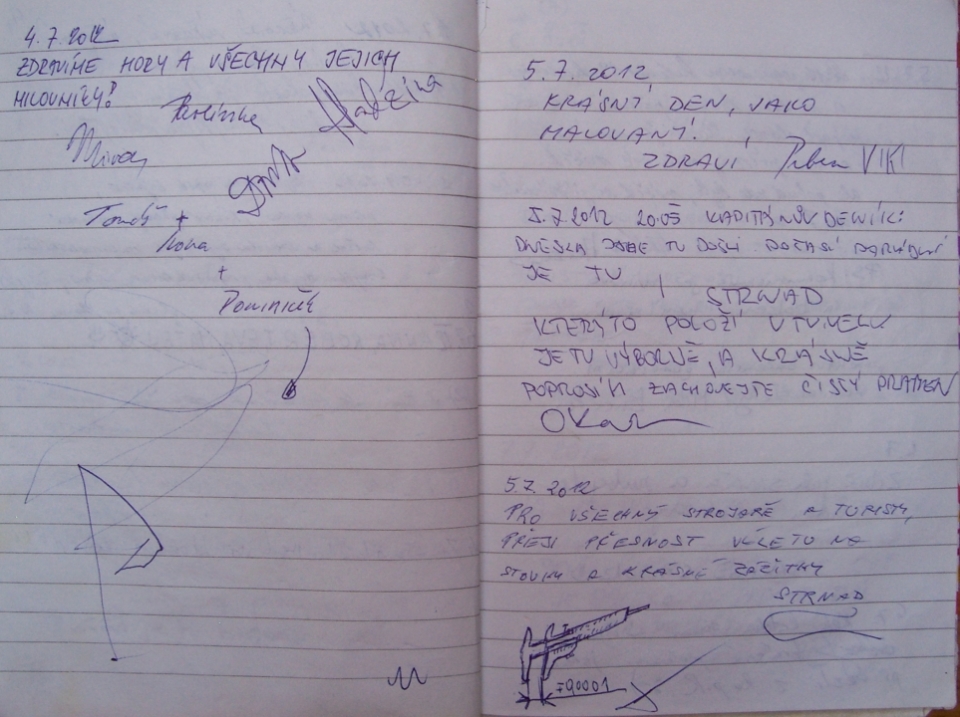 4.7.2012
ZDRAVÍME HORY A VŠECHNY JEJICH
MILOVNÍKY!
Pavlínka
Tomáš +
Ilona
+
Dominiček
5.7.2012
KRÁSNÝ DEN, JAKO
MALOVANÝ!
ZDRAVÍ VIKI
5.7.2012 20:05 KAPITÁNŮV DENÍK:
DNESKA JSME TU DOŠLI POČASÍ PARÁDNÍ
JE TU
STRNAD
KTERÝTO POLOŽÍ V TUNELU
JE TU VÝBORNĚ, A KRÁSNĚ
POPROSÍM ZACHOVEJTE ČISTÝ PRAMEN
5.7.2012
PRO VŠECHNY STROJAŘE A TURISTY,
PŘEJI PŘESNOST VÝLETU NA
STOVKY A KRÁSNÉ ZÁŽITKY
STRNAD